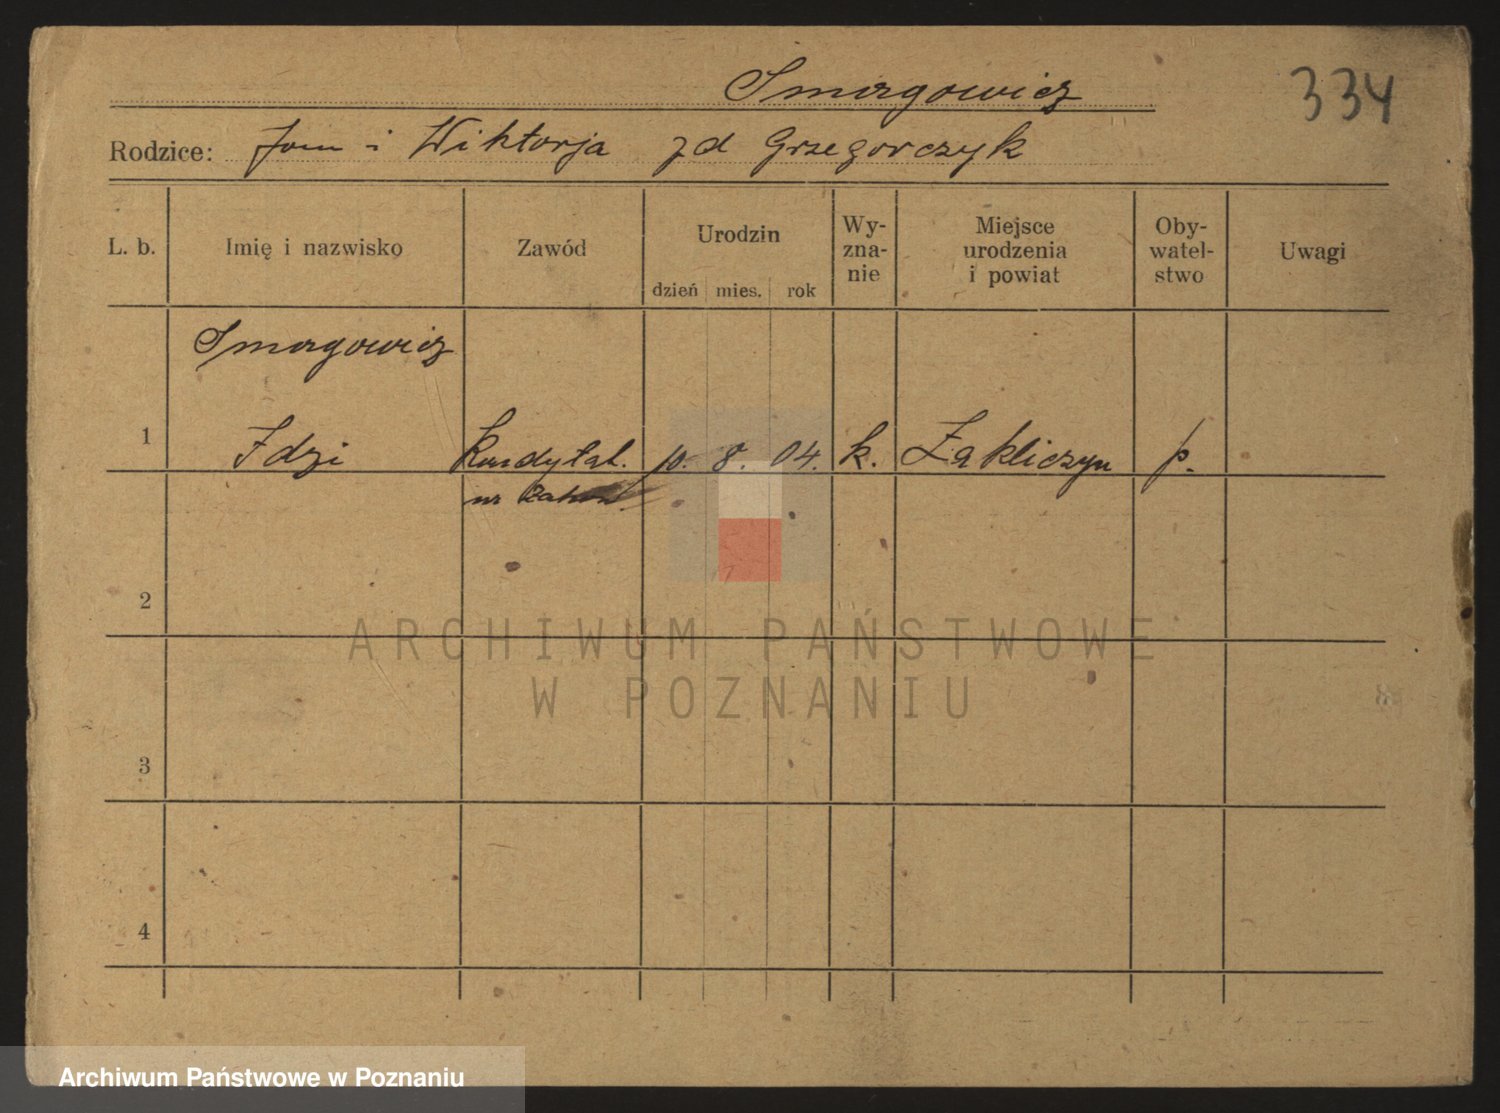 Smorgowicz
334
Rodzice: Jan i Wiktorja zd Grzegorczyk
L. b. Imię i nazwisko Zawód Urodzin dzień mies. rok Wy-zna-nie Miejsce urodzenia i powiat Oby-watel-stwo Uwagi
Smorgowicz
1 Idzi Kandydat. 10. 8. 04. k. Zakliczyn p.
2
ARCHIWUM PAŃSTWOWE
W POZNANIU
3
4
Archiwum Państwowe w Poznaniu